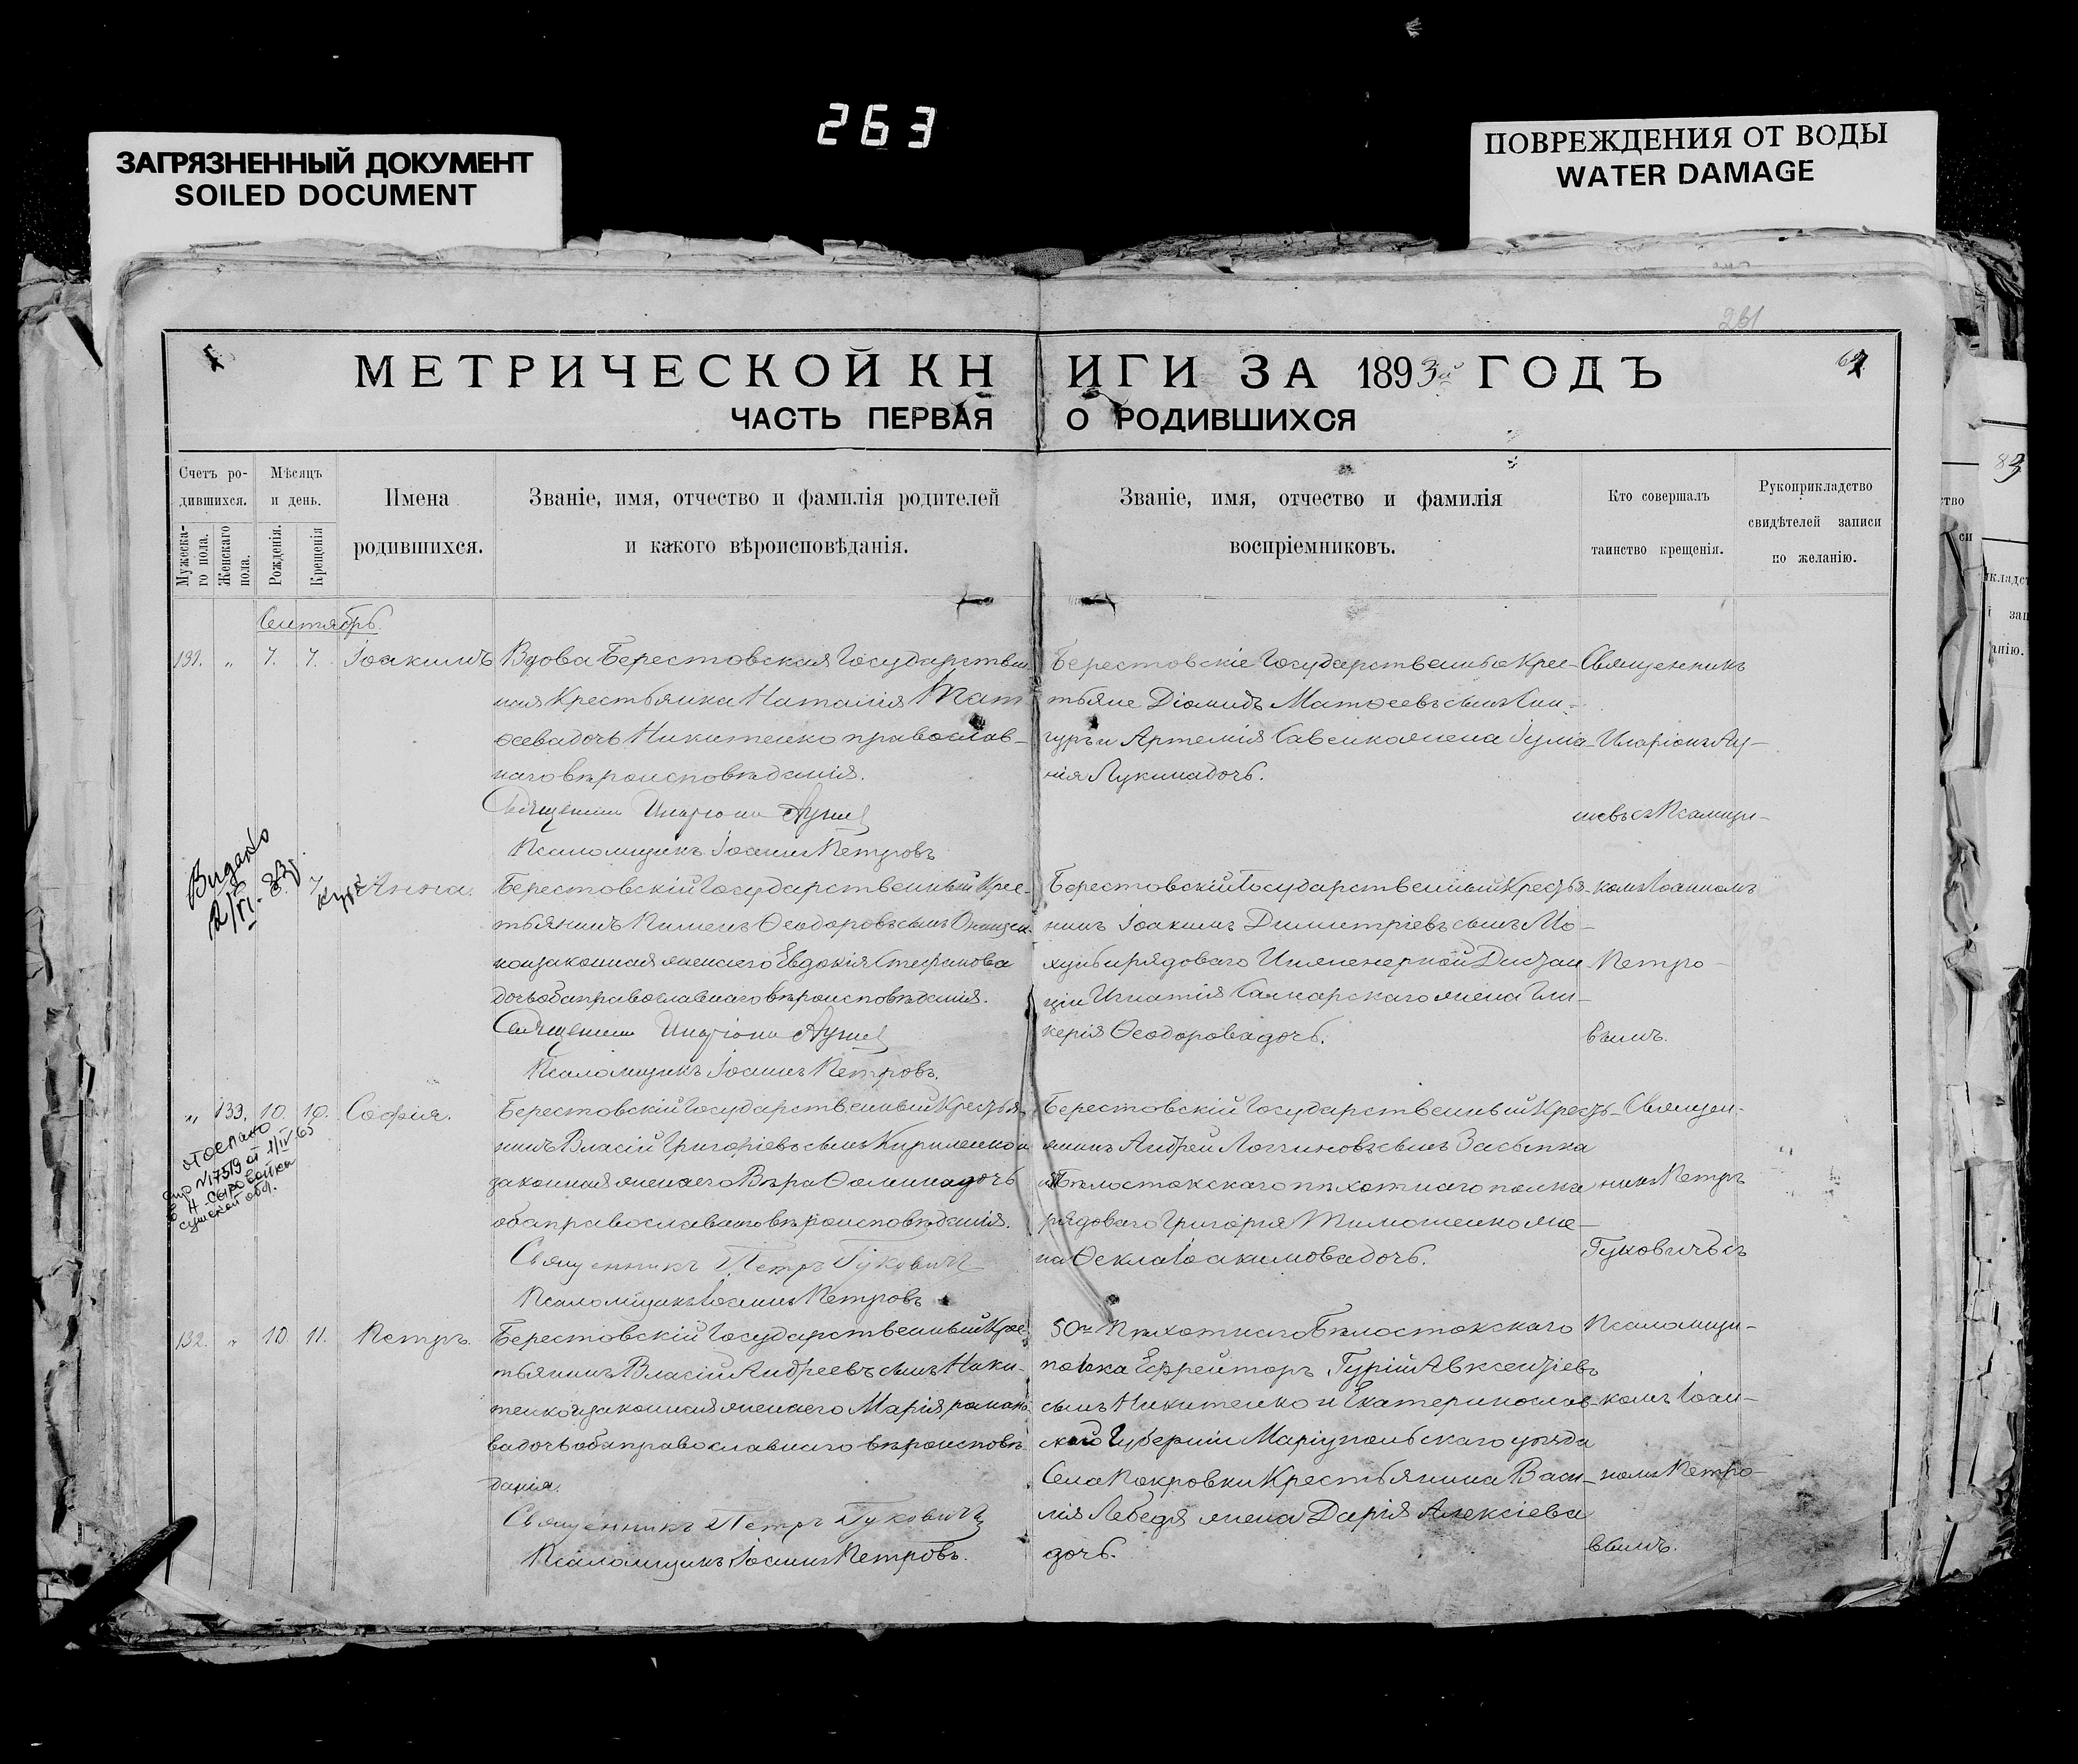 263
ЗАГРЯЗНЕННЫЙ ДОКУМЕНТ
SOILED DOCUMENT
ПОВРЕЖДЕНИЯ ОТ ВОДЫ
WATER DAMAGE
261
МЕТРИЧЕСКОЙ КН ИГИ ЗА 1893й ГОДЪ
ЧАСТЬ ПЕРВАЯ О РОДИВШИХСЯ
Счетъ ро-
дившихся.
Мужеска-
го пола.
Женскаго
пола.
Мѣсяцъ
и день.
Рожденія.
Крещенія
Имена
родившихся.
Званіе, имя, отчество и фамилія родителей
и какого вѣроисповѣданія.
Званіе, имя, отчество и фамилія
воспріемниковъ.
Кто совершалъ
таинство крещенія.
Рукоприкладство
свидѣтелей записи
по желанію.
Сентябрь
131. " 7. 7. Іоакимъ
Вдова Берестовская Государствен
ная Крестьянка Наталія Мат
ѳеева дочь Никитенко православ-
наго вѣроисповѣданія.
Священник Иларіонъ
Псаломщикъ Іоаннъ Петровъ
Берестовскіе Государственные Крес-
тьяне Діомидъ Матѳеевъ сынъ
и Артемія Савенко жена Іулiа-
нія Лукина дочь.
Священникъ
Иларіонъ
съ Псаломщи-
Выдано
2/VI-33
7 Анна.
Берестовскій Государственный Крес-
тьянинъ Пименъ Ѳеодоровъ сынъ
ко и законная жена его Евдокія Стефанова
дочь оба православнаго вѣроисповѣданія.
Священник Иларіонъ
Псаломщикъ Іоаннъ Петровъ.
Берестовскій Государственный Крестья-
нинъ Іоакимъ Димитріевъ сынъ Мо-
рядоваго Инженерной Дистан
ціи Игнатія жена Гли-
керія Ѳеодорова дочь.
комъ Іоанномъ
Петро-
вымъ.
" 139. 10. 10. Софія.
отослано
№17519 от 1/IV 65
Н-Сыроватка
сумской обл.
Берестовскій Государственный Крестья
нинъ Власій Григоріевъ сынъ Кириленко и
законная жена его Вѣра Ѳомина дочь
оба православнаго вѣроисповѣданія.
Священникъ Петръ Гуковичъ
Псаломщикъ Іоаннъ Петровъ
Берестовскій Государственный Кресть-
янинъ Андрей Логгиновъ сынъ Засыпка
и Бѣлостокскаго пѣхотнаго полка
рядоваго Григорія Тимошенко же-
на Ѳекла Іоакимова дочь.
Священ-
никъ Петръ
Гуковичъ съ
132. " 10 11. Петръ.
Берестовскій Государственный Крес-
тьянинъ Власій Андреевъ сынъ Ники-
тенко и законная жена его Марія Романо-
ва дочь оба православнаго вѣроисповѣ
данія.
Священникъ Петръ Гуковичъ
Псаломщикъ Іоаннъ Петровъ.
50го Пѣхотнаго Бѣлостокскаго
полка Ефрейторъ Гурій Авксентіевъ
сынъ Никитенко и Екатеринослав-
ской Губерніи Маріупольскаго уѣзда
Села Покровки Крестьянина Васи-
лія Лебедя жена Дарія Алексіева
дочь.
Псаломщи-
комъ Іоан-
номъ Петро-
вымъ.